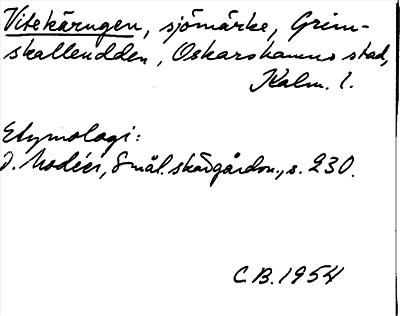 Vitekärngen, sjömärke, Grim-
skallendden, Oskarshamns stad,
Kalm. l.
Etymologi:
I. Modéer, Smål. skärgårdsn., s. 230.
C.B. 1954